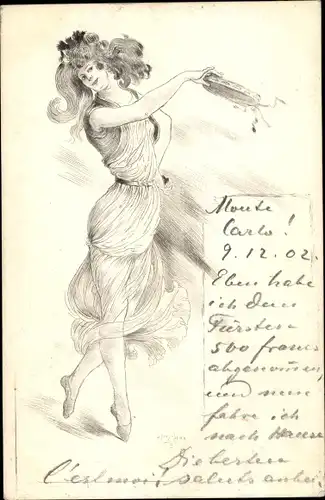 Monte
Carlo!
9.12.02.
Eben habe
ich dem
Fürsten
500 francs
abgenommen,
und nun
fahre ich
nach Hause
C'est moi, saluts